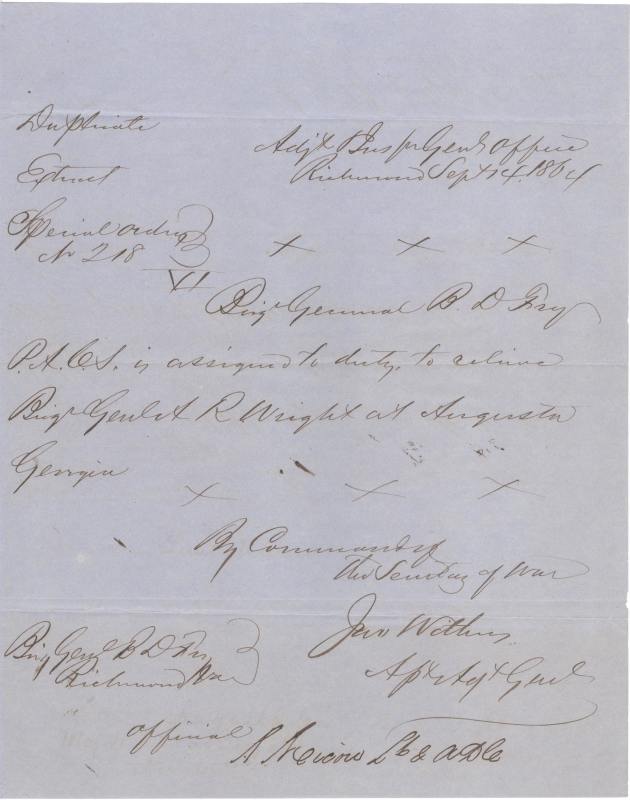 Duplicate
Adjt & Insp Genls Office
Richmond Sept 14. 1864
Extract
Special orders
No 218
X X X
VI
Brigr General B. D Fry
P.A.C.S. is assigned to duty, to relieve
Brigr Genl A R Wright at Augusta
Georgia
X X X
By Command of
the Secretary of War
Jno Withers
Asst Adjt Genl
Brig Genl B D Fry
Richmond Va
official
A Micou Lt & ADC